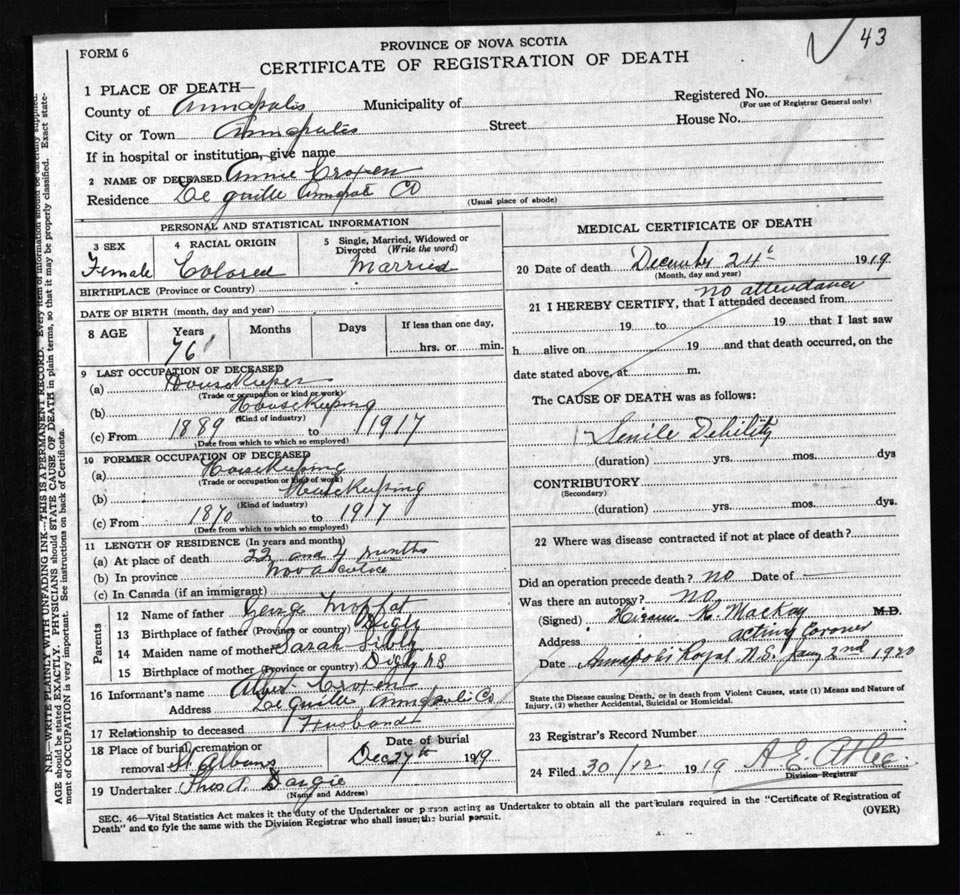 43
FORM 6
PROVINCE OF NOVA SCOTIA
CERTIFICATE OF REGISTRATION OF DEATH
1 PLACE OF DEATH—
County of Annapolis Municipality of Registered No.
(For use of Registrar General only)
City or Town Annapolis Street House No.
If in hospital or institution, give name
2 NAME OF DECEASED Annie Croxen
Residence Le quille Annapolis Co
(Usual place of abode)
PERSONAL AND STATISTICAL INFORMATION
3 SEX 4 RACIAL ORIGIN 5 Single, Married, Widowed or Divorced (Write the word)
Female Colored Married
BIRTHPLACE (Province or Country)
DATE OF BIRTH (month, day and year)
8 AGE Years Months Days If less than one day,
76 hrs. or min.
9 LAST OCCUPATION OF DECEASED
(a) Housekeeper
(Trade or occupation or kind of work)
(b) Housekeeping
(Kind of industry)
(c) From 1889 to 1917
(Date from which to which so employed)
10 FORMER OCCUPATION OF DECEASED
(a) Housekeeping
(Trade or occupation or kind of work)
(b) Housekeeping
(Kind of industry)
(c) From 1870 to 1917
(Date from which to which so employed)
11 LENGTH OF RESIDENCE (In years and months)
(a) At place of death 22 and 4 months
(b) In province Nova Scotia
(c) In Canada (if an immigrant)
Parents
12 Name of father George
13 Birthplace of father (Province or country) Digby
14 Maiden name of mother Sarah
15 Birthplace of mother (Province or country) Digby N S
16 Informant's name Albert Croxen
Address Le quille Annapolis Co
17 Relationship to deceased Husband
18 Place of burial, cremation or removal St Albans Date of burial Dec 27th 1919
19 Undertaker Thos A. Dargie
(Name and Address)
MEDICAL CERTIFICATE OF DEATH
20 Date of death December 24th 1919
(Month, day and year)
no attendance
21 I HEREBY CERTIFY, that I attended deceased from
19 to 19 that I last saw
h alive on 19 and that death occurred, on the
date stated above, at m.
The CAUSE OF DEATH was as follows:
Senile Debility
(duration) yrs. mos. dys
CONTRIBUTORY
(Secondary)
(duration) yrs. mos. dys.
22 Where was disease contracted if not at place of death?
Did an operation precede death? no Date of
Was there an autopsy? no
(Signed) Hiram R MacKay M.D.
Address acting Coroner
Date Annapolis Royal N.S. Jany 2nd 1920
State the Disease causing Death, or in death from Violent Causes, state (1) Means and Nature of
Injury, (2) whether Accidental, Suicidal or Homicidal.
23 Registrar's Record Number
24 Filed 30/12 1919 A. E. Atlee
Division Registrar
SEC. 46—Vital Statistics Act makes it the duty of the Undertaker or person acting as Undertaker to obtain all the particulars required in the "Certificate of Registration of
Death" and to fyle the same with the Division Registrar who shall issue the burial permit.
(OVER)
N.B.—WRITE PLAINLY WITH UNFADING INK—THIS IS A PERMANENT RECORD. Every item of information should be carefully supplied.
AGE should be stated EXACTLY. PHYSICIANS should STATE CAUSE OF DEATH in plain terms, so that it may be properly classified. Exact state-
ment of OCCUPATION is very important. See instructions on back of Certificate.